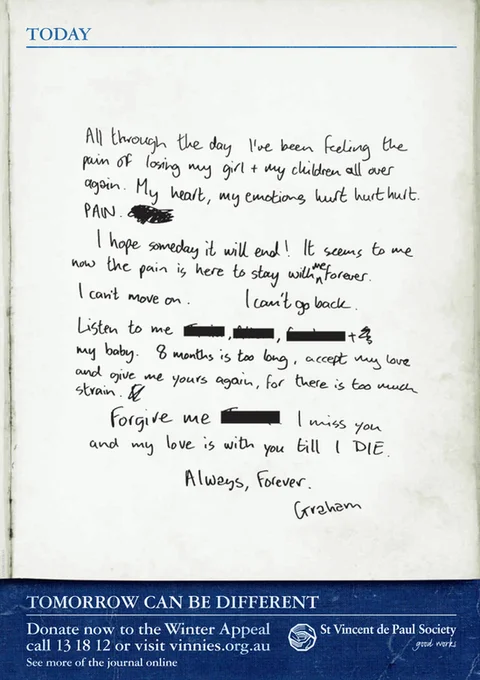 TODAY
All through the day I've been feeling the
pain of losing my girl + my children all over
again. My heart, my emotions hurt hurt hurt.
PAIN.
I hope someday it will end! It seems to me
now the pain is here to stay with me forever.
I can't move on. I can't go back.
Listen to me , , +
my baby. 8 months is too long, accept my love
and give me yours again, for there is too much
strain.
Forgive me I miss you
and my love is with you till I DIE.
Always, Forever.
Graham
TOMORROW CAN BE DIFFERENT
Donate now to the Winter Appeal
call 13 18 12 or visit vinnies.org.au
See more of the journal online
St Vincent de Paul Society
good works